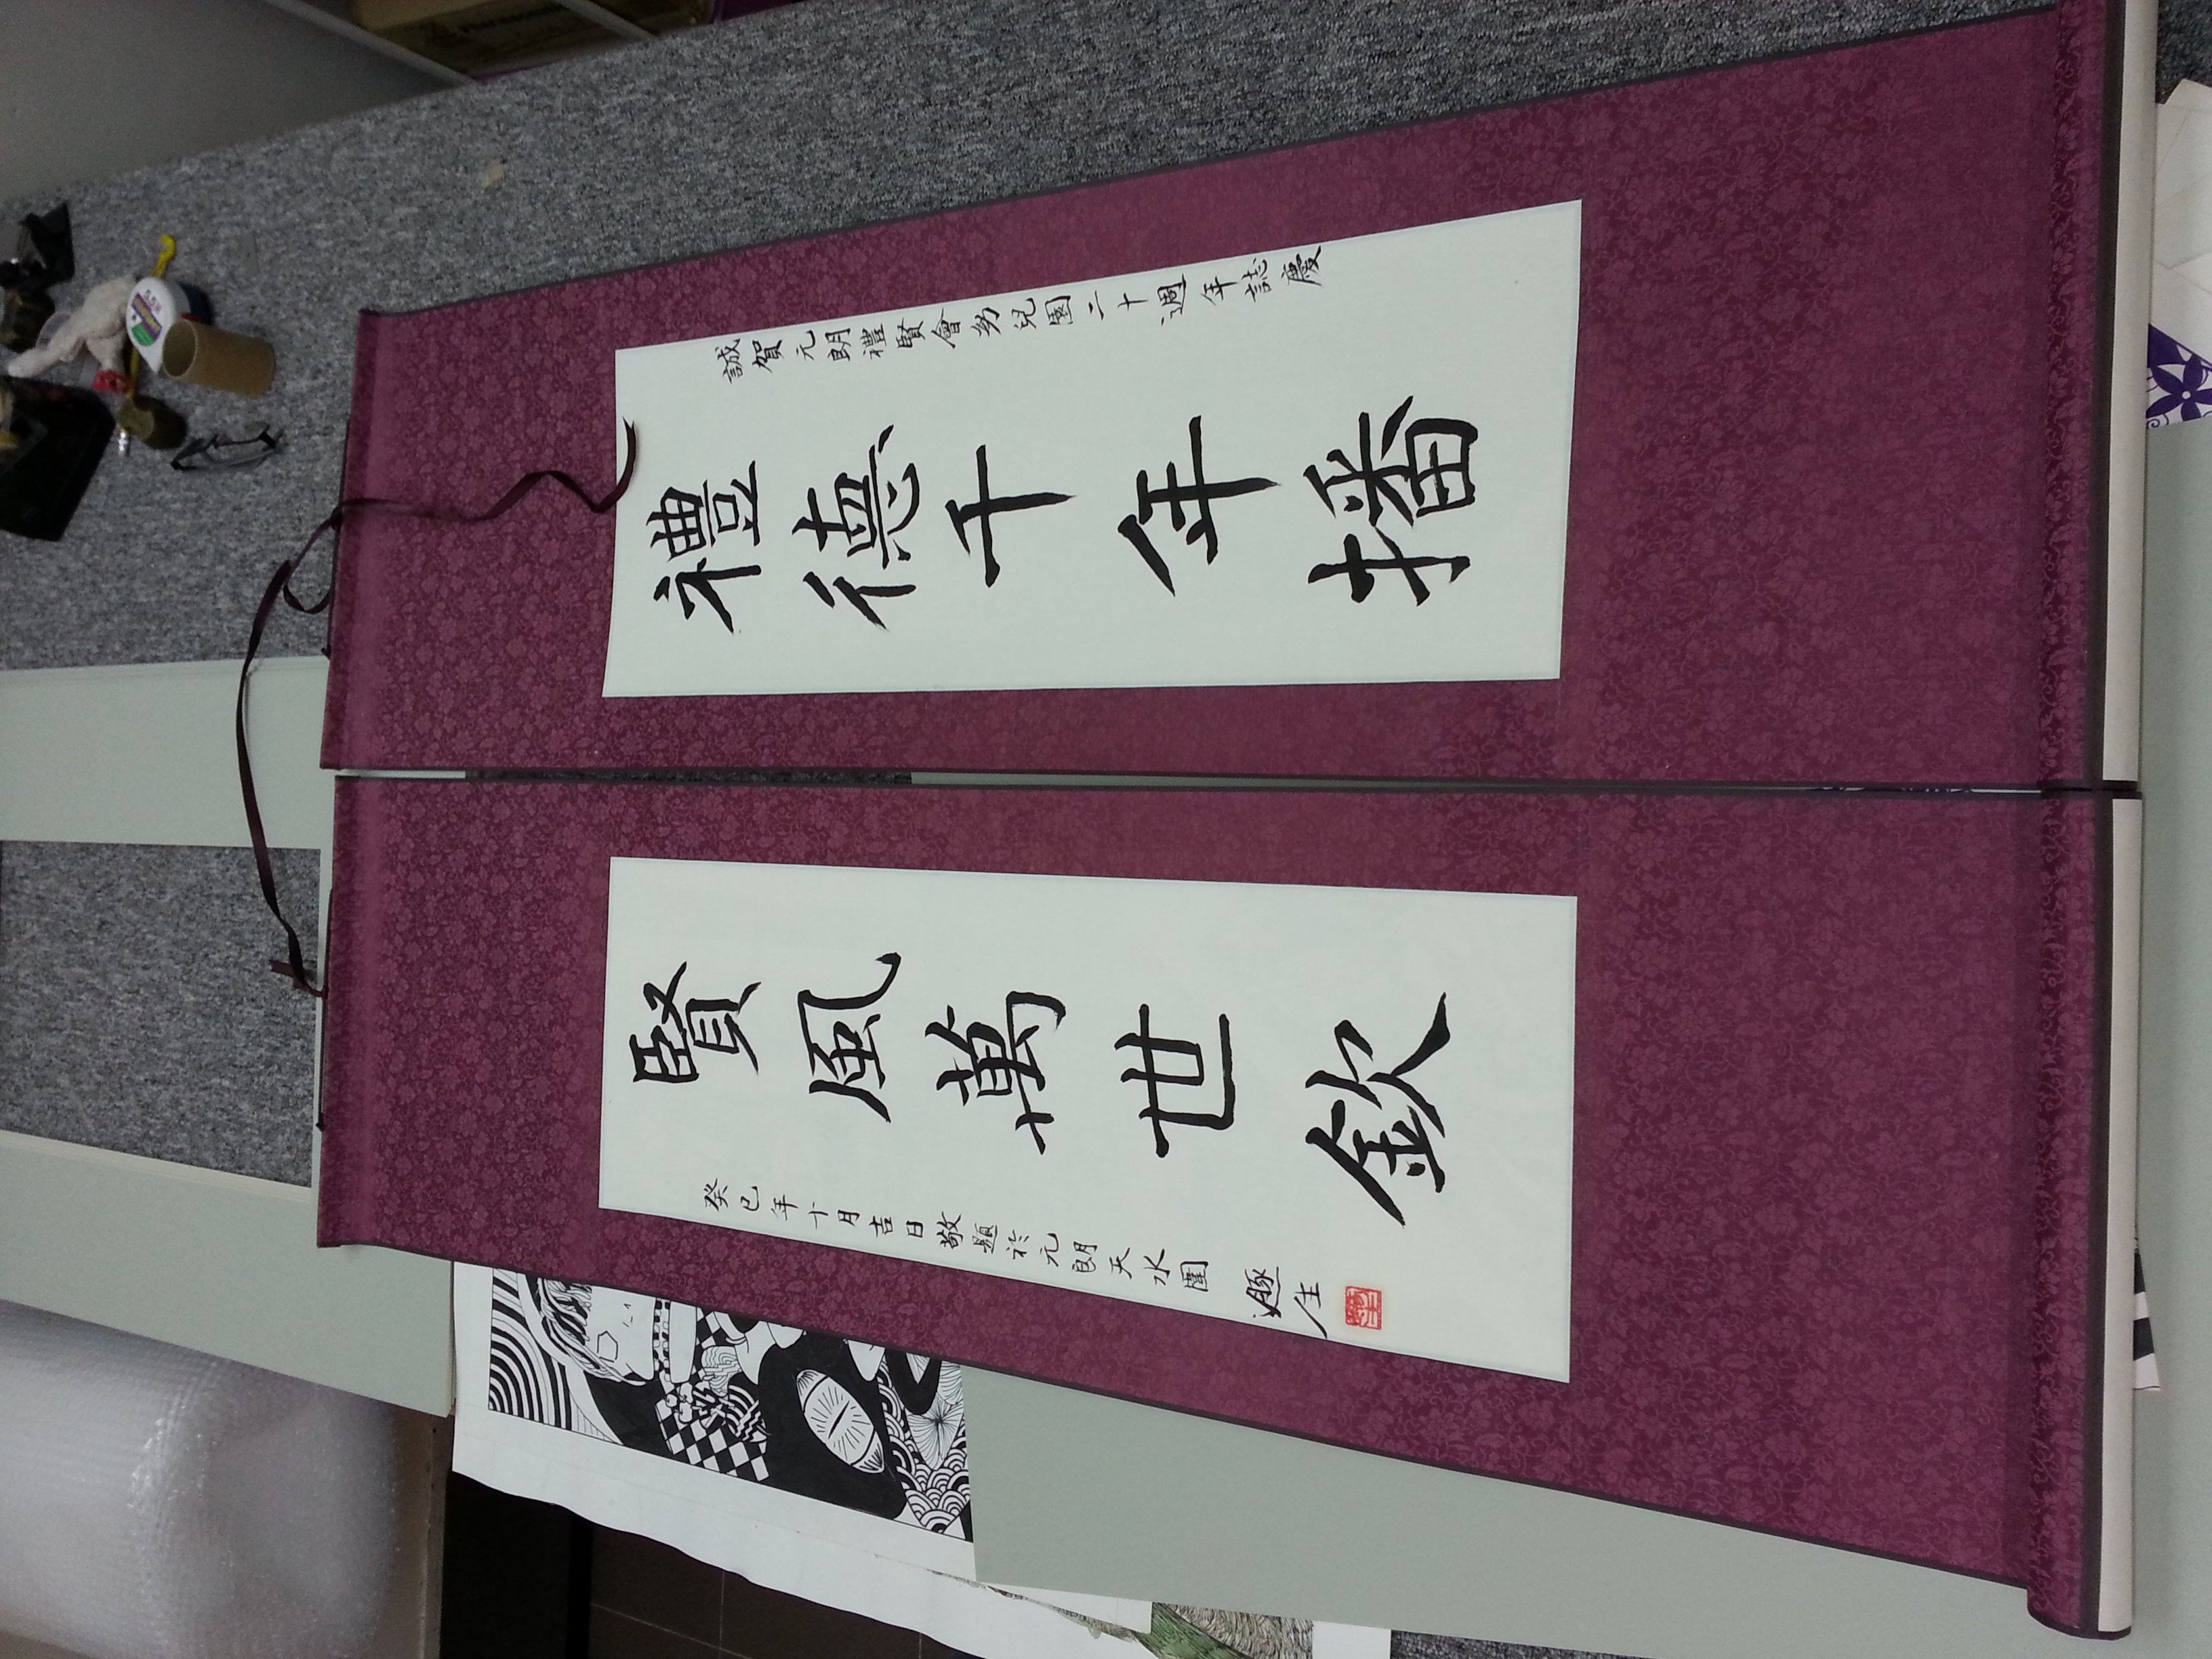 誠賀元朗禮賢會幼兒園二十週年誌慶
禮德千年播
賢風萬世欽
癸巳年十月吉日敬題於元朗天水圍
豚生